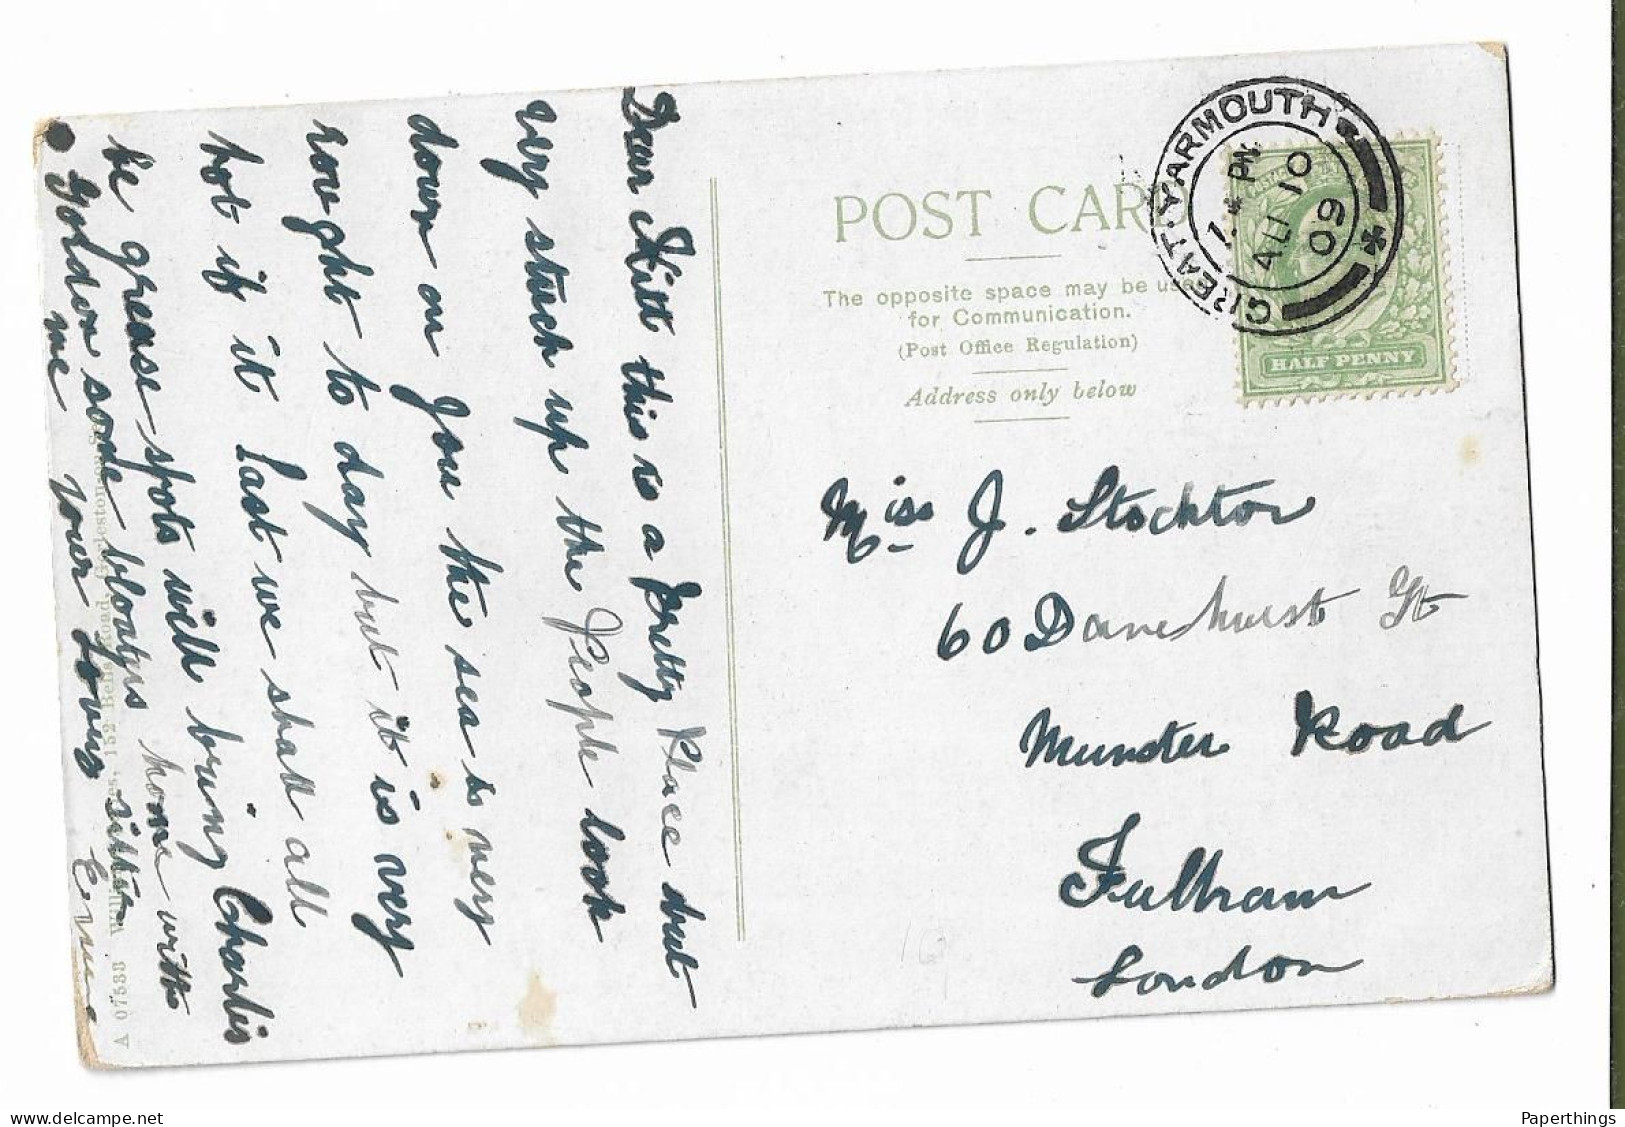 Dear Kitt this is a Pretty Place but
very stuck up the People look
down on you the sea is very
rought to day but it is very
hot if it Last we shall all
be grease-spots will bring Charlis
Goldon some bloatyrs home with
me your Loving sister
POST CARD
The opposite space may be use
for Communication.
(Post Office Regulation)
Address only below
GREAT YARMOUTH
7. * PM
AU 10
09
HALF PENNY
Miss J. Stockton
60 Danehurst St
Munster Road
Fulham
London
A 07533
152 Bells Road, Gorleston-on-S
Paperthings